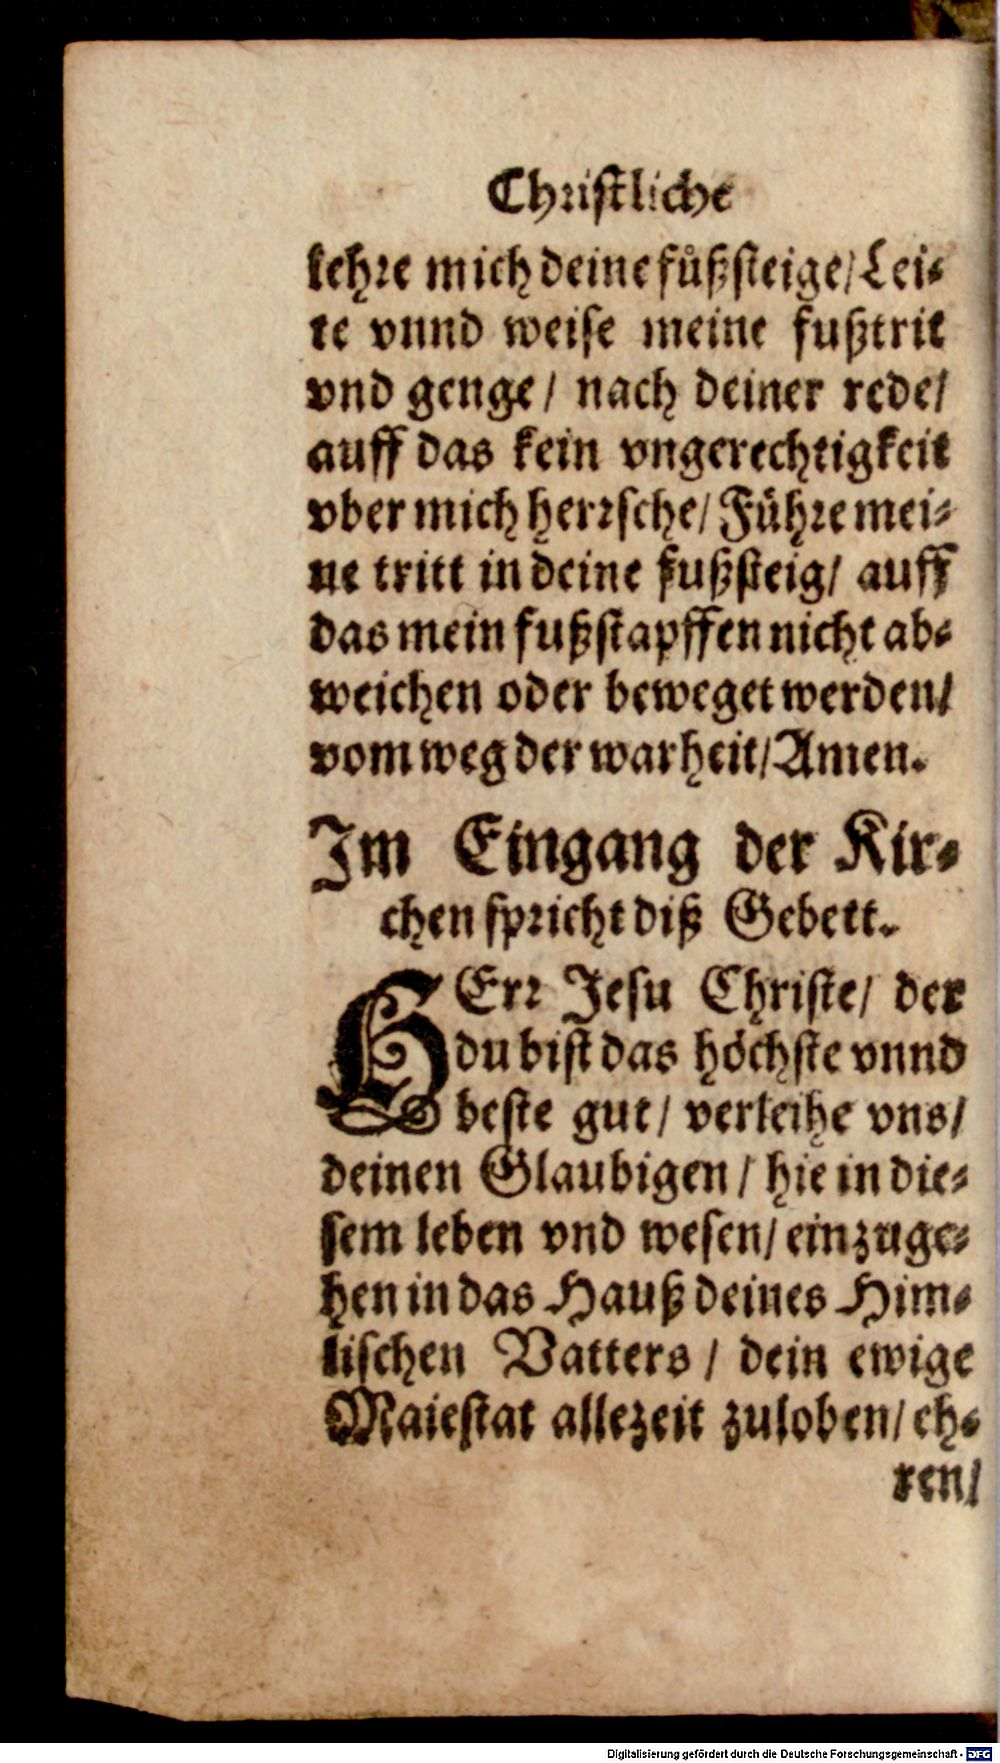 Christliche
lehre mich deine fůßsteige/ Lei-
te vnnd weise meine fußtrit
vnd genge/ nach deiner rede/
auff das kein vngerechtigkeit
vber mich herrsche/ Führe mei-
ne tritt in deine fußsteig/ auff
das mein fußstapffen nicht ab-
weichen oder beweget werden/
vom weg der warheit/ Amen.
Im Eingang der Kir-
chen spricht diß Gebett.
HErr Jesu Christe/ der
du bist das höchste vnnd
beste gut/ verleihe vns/
deinen Glaubigen/ hie in die-
sem leben vnd wesen/ einzuge-
hen in das Hauß deines Him-
lischen Vatters/ dein ewige
Maiestat allezeit zuloben/ eh-
ren/
Digitalisierung gefördert durch die Deutsche Forschungsgemeinschaft - DFG